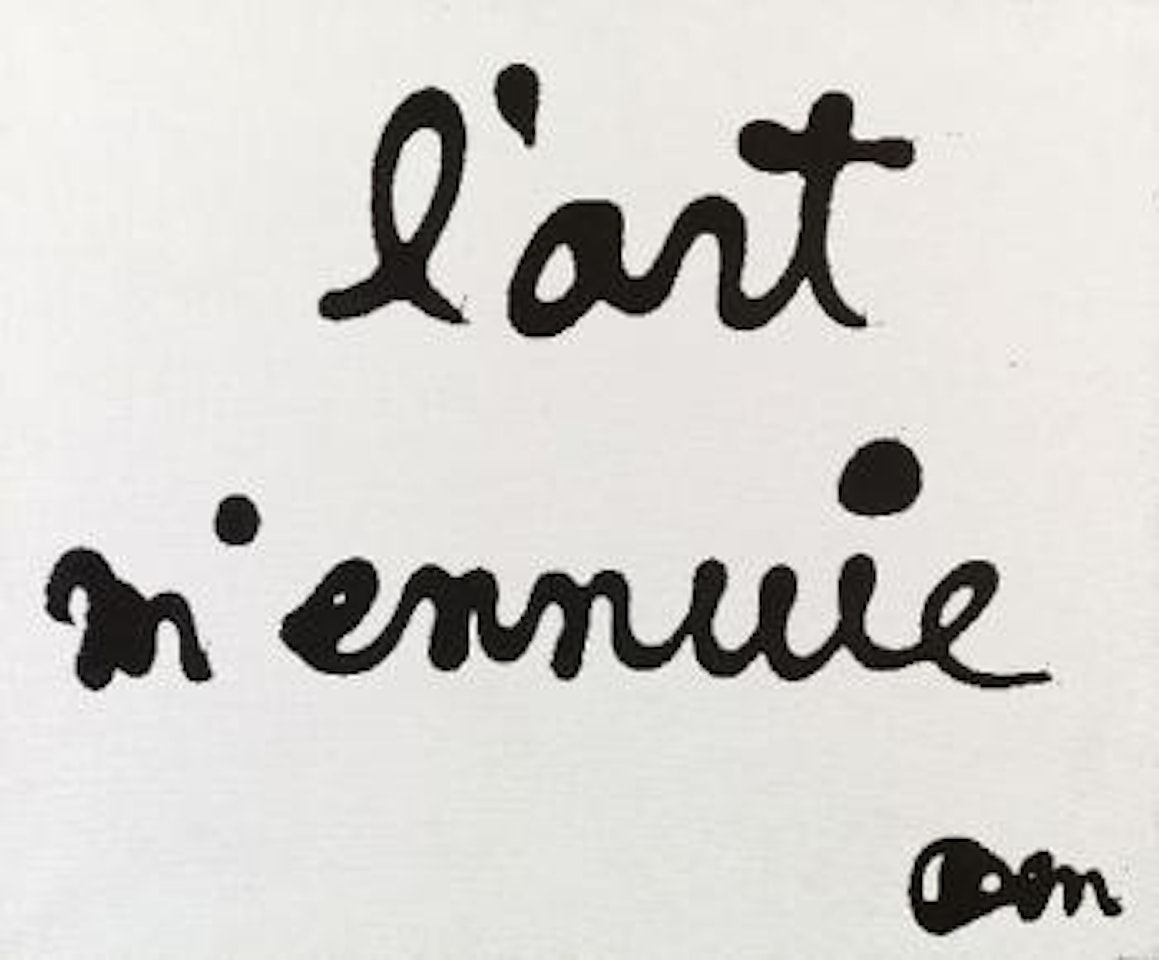 l'art
m'ennuie
Ben